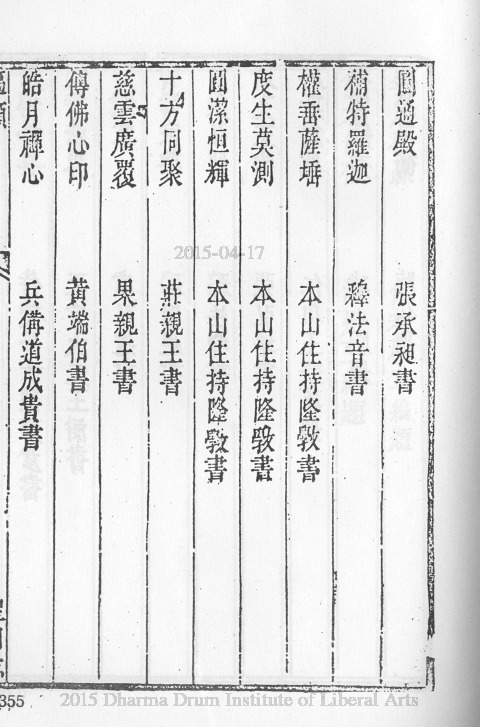 圓通殿　張承昶書
補特羅迦　穆法音書
權垂薩埵　本山住持隆斆書
度生莫測　本山住持隆斆書
圓潔恒輝　本山住持隆斆書
十方同聚　莊親王書
慈雲廣覆　果親王書
傳佛心印　黄端伯書
皓月禪心　兵備道成貴書
2015-04-17
355
2015 Dharma Drum Institute of Liberal Arts